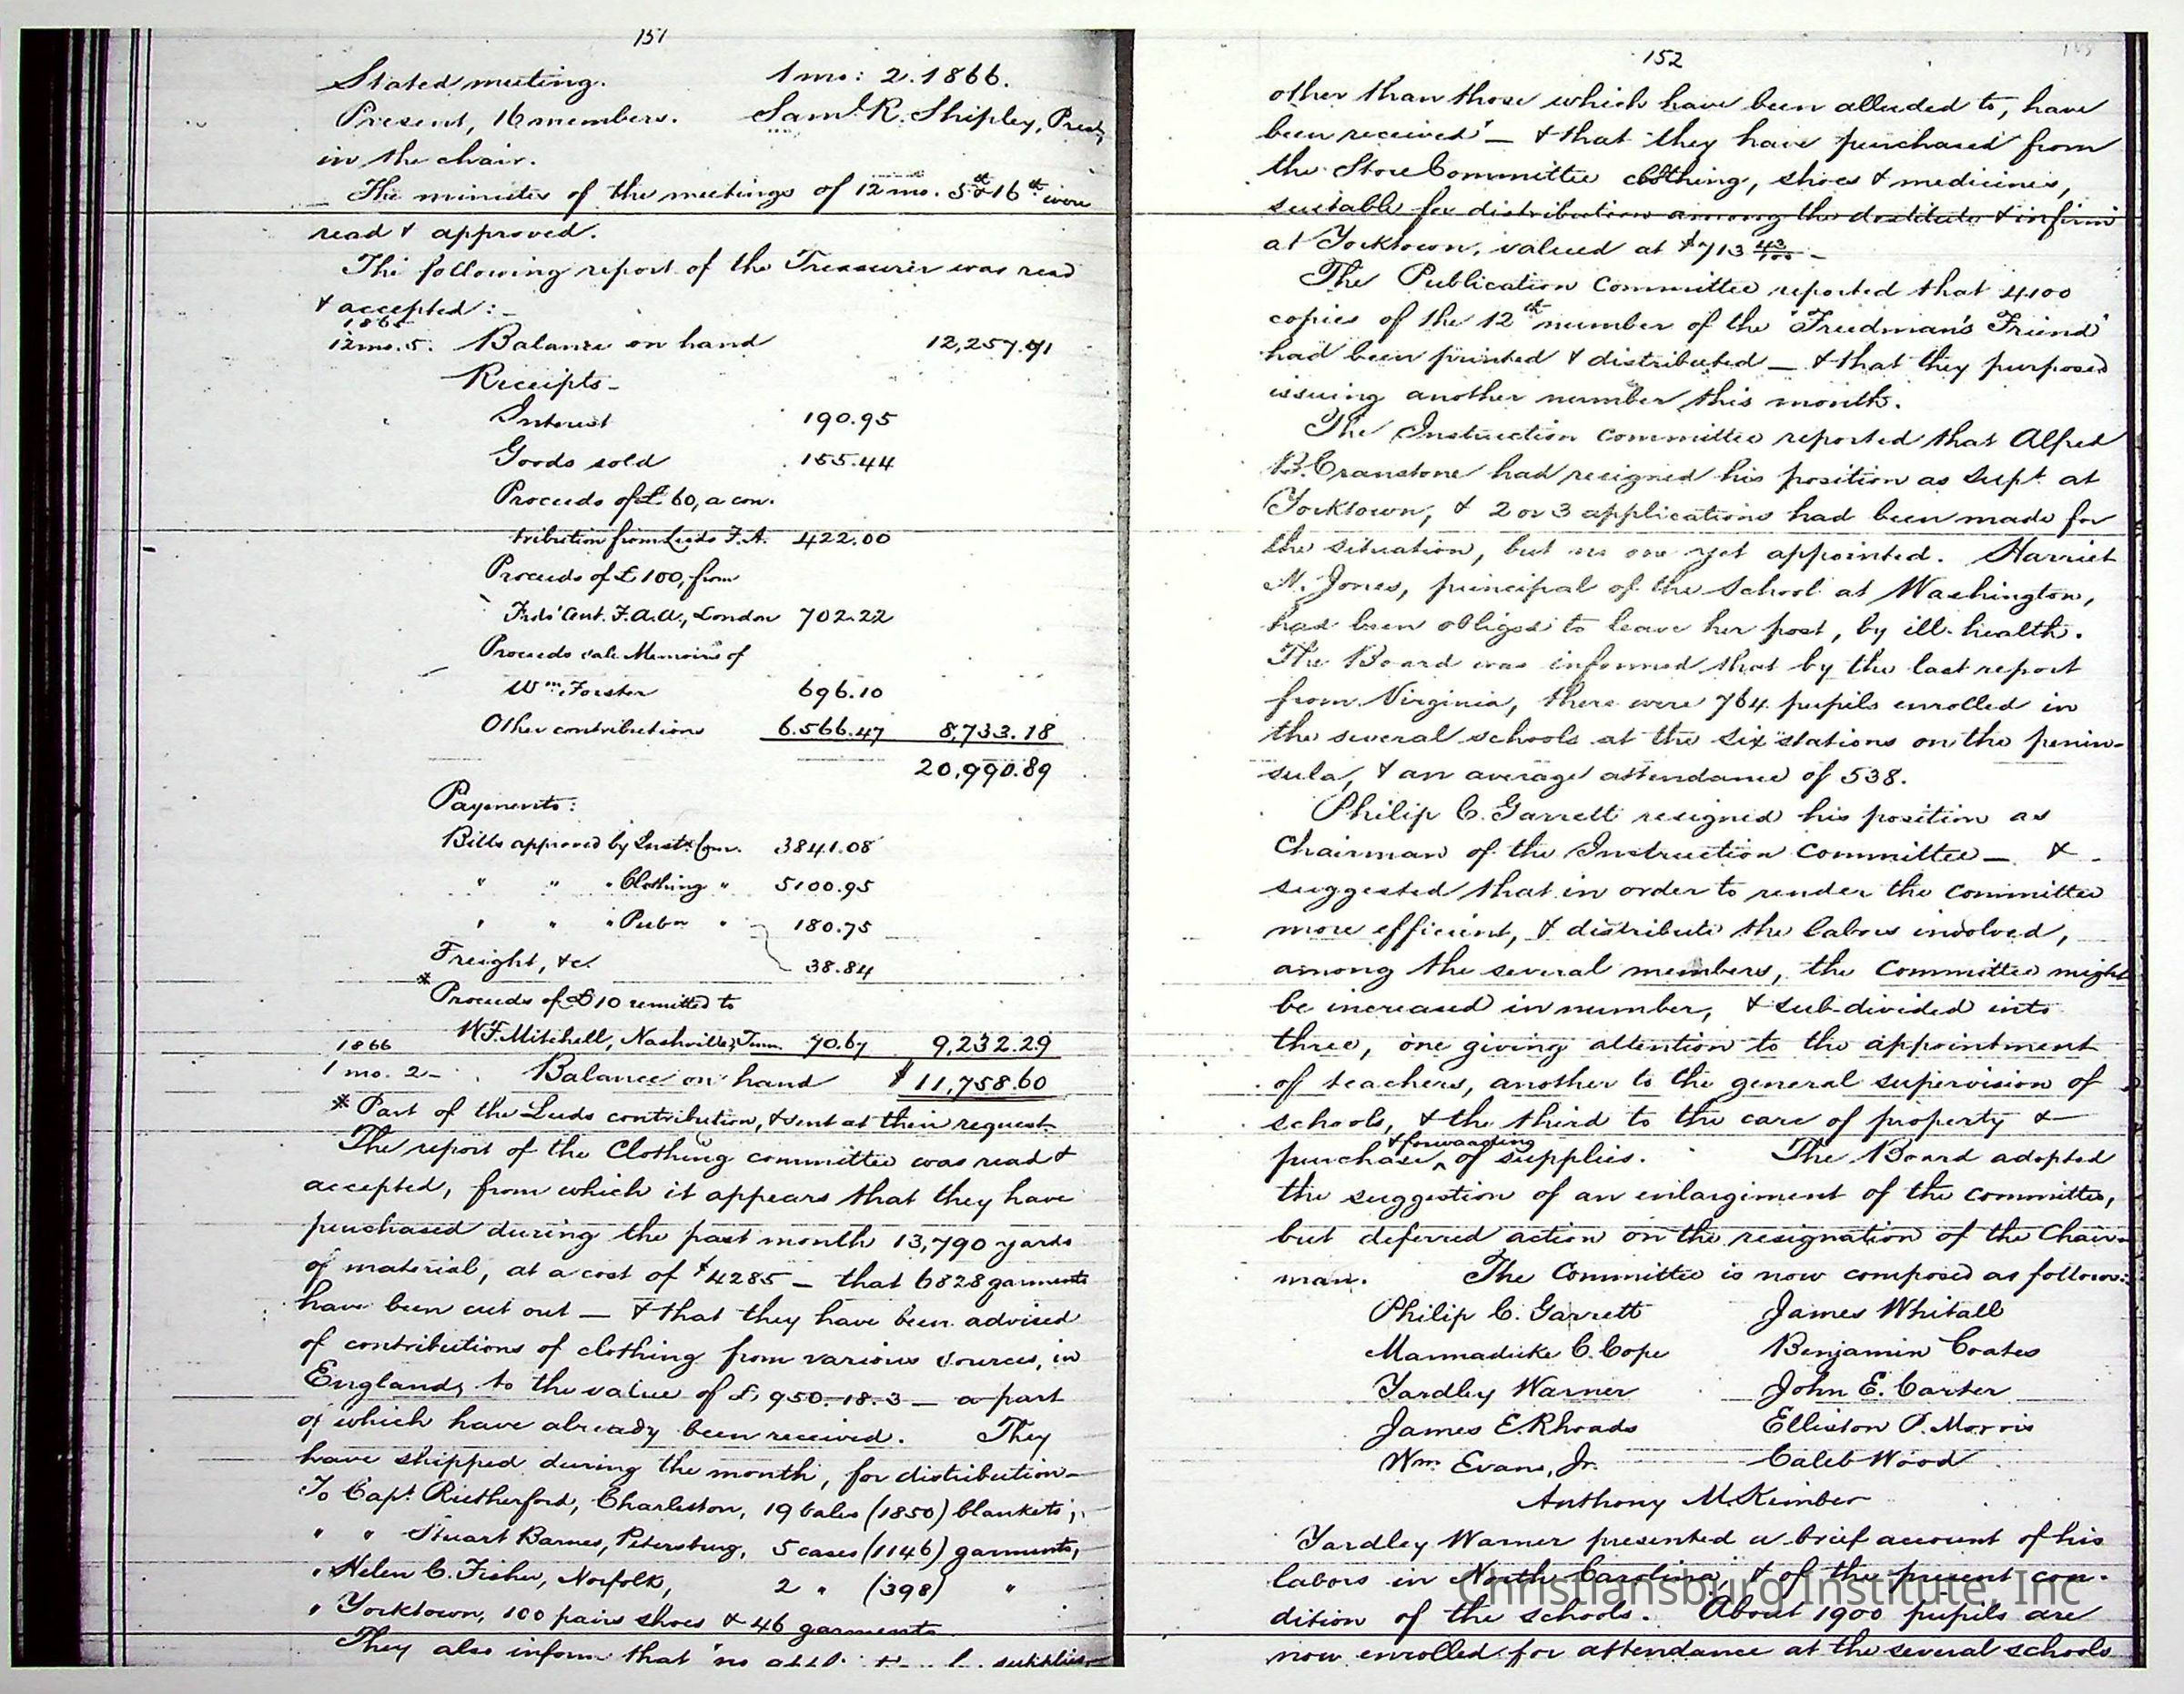 151
Stated meeting. 1 mo: 2. 1866.
Present, 16 members. Saml. R. Shipley, Prest,
in the chair.
The minutes of the meetings of 12 mo. 5th & 16th were
read & approved.
The following report of the Treasurer was read
& accepted:-
1865
12 mo. 5. Balance on hand 12,257.71
Receipts-
Interest 190.95
Goods sold 155.44
Proceeds of £ 60, a con.
tribution from Leeds F.A. 422.00
Proceeds of £ 100, from
Frds' Cent. F.A.A., London 702.22
Proceeds sale Memoirs of
Wm. Forster 696.10
Other contributions 6.566.47 8,733.18
20,990.89
Payments:
Bills approved by Inst. Com. 3841.08
" " " Clothing " 5100.95
" " " Pubn " 180.75
Freight, &c. 38.84
* Proceeds of £10 remitted to
W.F. Mitchell, Nashville, Tenn. 70.67 9,232.29
1866
1 mo. 2- Balance on hand $ 11,758.60
* Part of the Leeds contribution, & sent at their request
The report of the Clothing committee was read &
accepted, from which it appears that they have
purchased during the past month 13,790 yards
of material, at a cost of $4285 - that 6828 garments
have been cut out - & that they have been advised
of contributions of clothing from various sources, in
England, to the value of £ 950.18.3 - a part
of which have already been received. They
have shipped during the month, for distribution-
To Capt. Rutherford, Charleston, 19 bales (1850) blankets;
" " Stuart Barnes, Petersburg, 5 cases (1146) garments,
" Helen C. Fisher, Norfolk, 2 " (398) "
" Yorktown, 100 pairs shoes & 46 garments
They also inform that "no supplies
152
other than those which have been alluded to, have
been received" - & that they have purchased from
the Store Committee clothing, shoes & medicines,
suitable for distribution among the destitute & infirm
at Yorktown, valued at $713 43/100 -
The Publication Committee reported that 4100
copies of the 12th number of the "Freedman's Friend"
had been printed & distributed - & that they purposed
issuing another number this month.
The Instruction Committee reported that Alfred
B. Cranstone had resigned his position as Supt. at
Yorktown, & 2 or 3 applications had been made for
the situation, but no one yet appointed. Harriet
N. Jones, principal of the School at Washington,
had been obliged to leave her post, by ill-health.
The Board was informed that by the last report
from Virginia, there were 764 pupils enrolled in
the several schools at the six stations on the penin-
sula, & an average attendance of 538.
Philip C. Garrett resigned his position as
Chairman of the Instruction Committee - & -
suggested that in order to render the committee
more efficient, & distribute the labors involved,
among the several members, the Committee might
be increased in number, & sub-divided into
three, one giving attention to the appointment
of teachers, another to the general supervision of
schools, & the third to the care of property &
purchase & forwarding of supplies. The Board adopted
the suggestion of an enlargement of the committee,
but deferred action on the resignation of the Chair-
man. The Committee is now composed as follows:
Philip C. Garrett James Whitall
Marmaduke C. Cope Benjamin Coates
Yardley Warner John E. Carter
James E. Rhoads Elliston P. Morris
Wm. Evans, Jr. Caleb Wood
Anthony M. Kimber
Yardley Warner presented a brief account of his
labors in North Carolina, & of the present con-
dition of the schools. About 1900 pupils are
now enrolled for attendance at the several schools
Christiansburg Institute, Inc